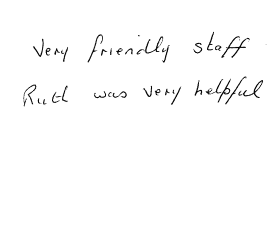 Very friendly staff
Ruth was very helpful